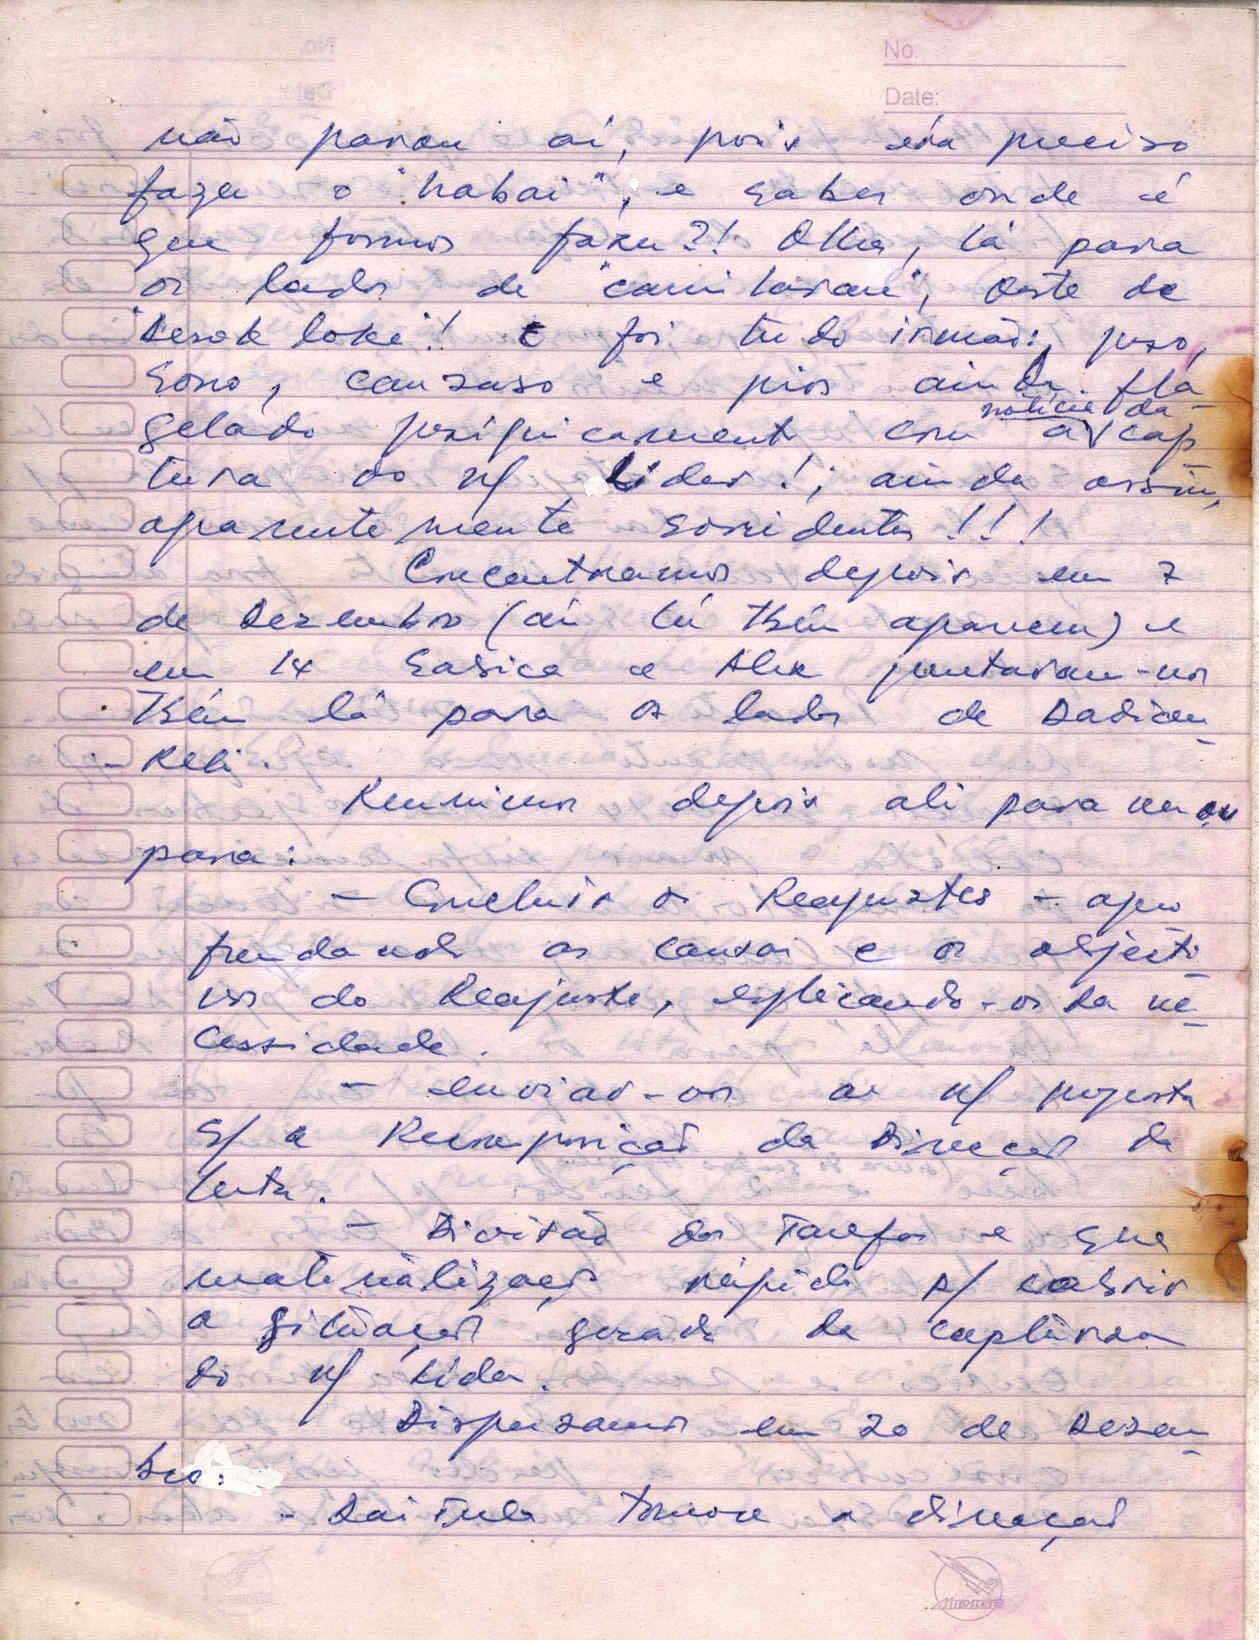 No.
Date:
não parou aí, pois era preciso
fazer o "habai", e saber onde é
que fomos fazer?! Olha, lá para
os lados de "cairilaran", Oeste de
"Kesak loke"! E foi tudo irmão: peso,
sono, cansaso e pior ainda. fla-
gelado psiquicamente com a notícia da cap
tura do n/ Líder!; ainda assim,
aparentemente sorridentes!!!
Encontramos depois em 7
de Dezembro (aí Lú Tbém aparecem) e
em 14 Sabica e Alex juntaram-nos
Tbém lá para os lados de Dadiau
- Keli.
Reunimos depois ali para
para:
- Concluir os Reajustes - apro
fundando as causas e os objecti-
vos do Reajuste, explicando-os da ne-
cessidade.
- enviar-vos a n/ proposta
S/ a Recomposição da Direcção da
luta.
- Divisão das Tarefas e sua
materialização rápida p/ cobrir
a situação gerada da captura
do n/ Líder.
Dispersamos em 20 de Dezem-
bro:
- Daitula tomou a direcção